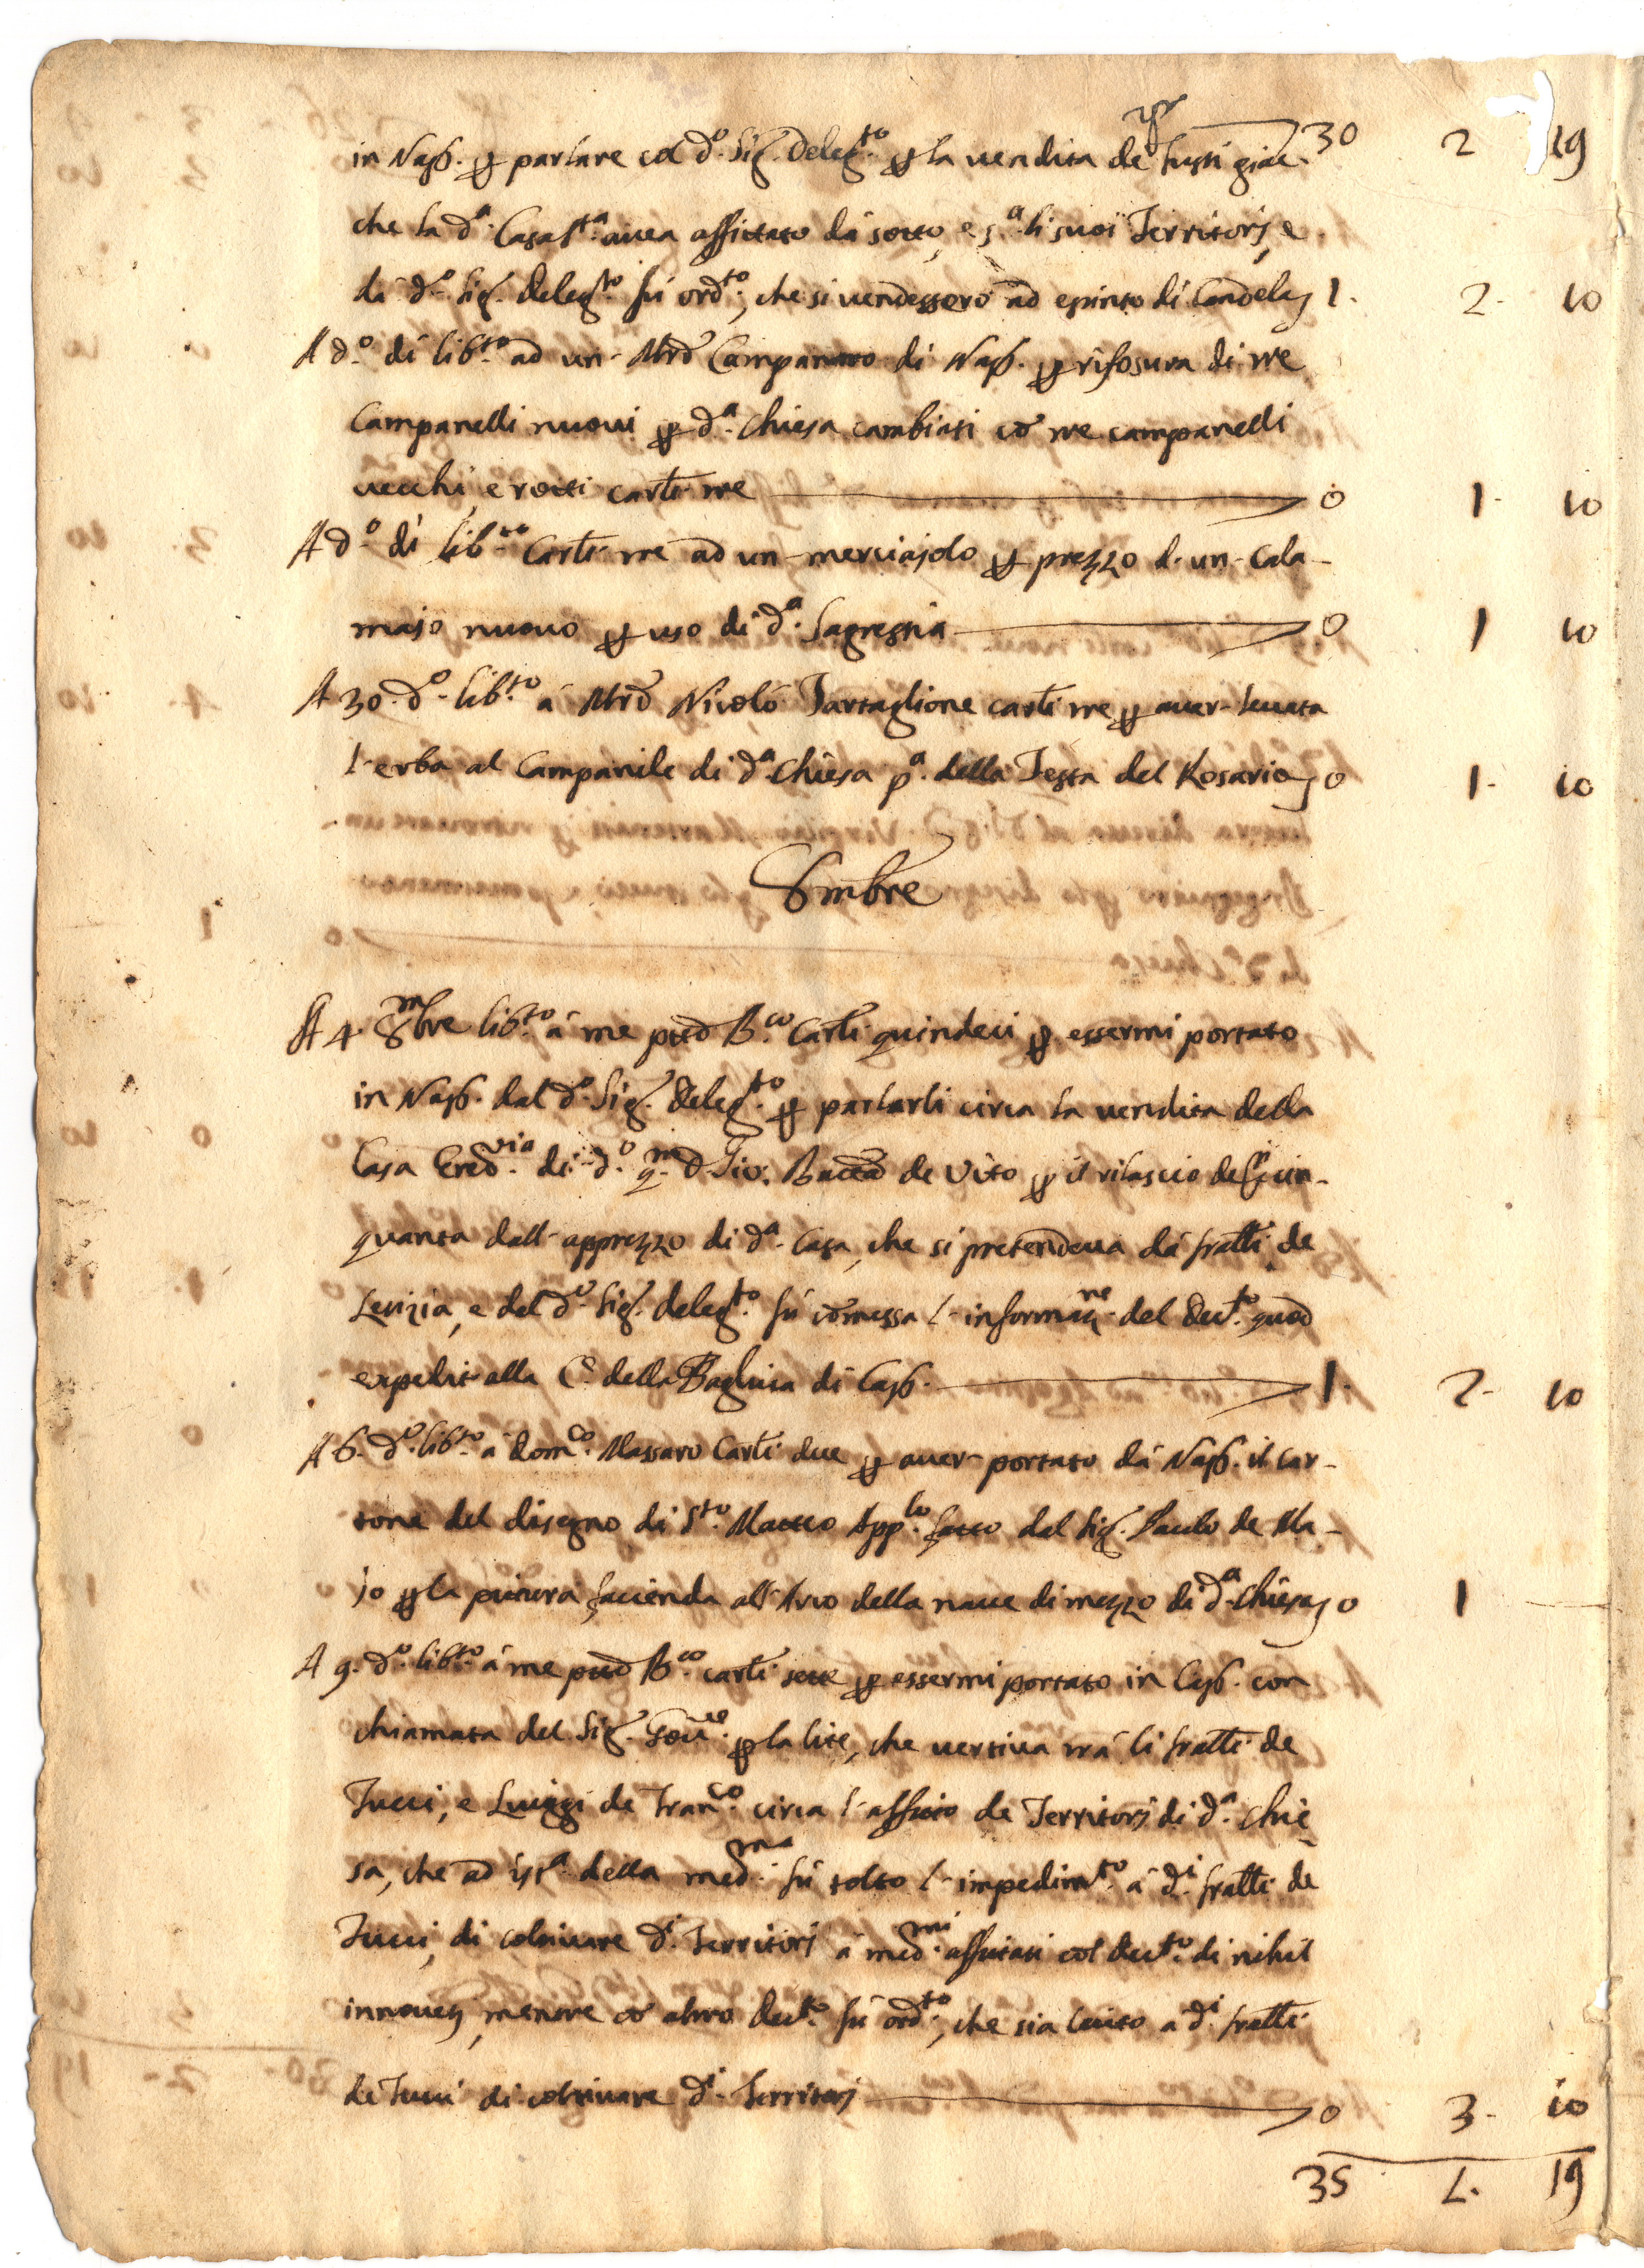 in Nap. p parlare col d.º Sig. Deleg.to p la vendita de frutti 30 2 19
che la d.a Casa s.ta avea affittato dá sotto, e s.a li suoi Territorj, e
dá d.º Sig. Deleg.to fú ord.to, che si vendessero ad estinto di Candela 1. 2. 10
A d.º dí lib.to ad un Mrõ Campanaro di Nap. p rifosura di tre
Campanelli nuovi p d.a Chiesa cambiati cõ tre campanelli
vecchi, e rotti carli tre 0 1. 10
A d.º dí lib.to Carli tre ad un merciajolo p prezzo d'un Cala-
majo nuovo p uso di d.a Sagrestia 0 1 10
A 30. d.º lib.to á Mrõ Nicoló Tartaglione carli tre p aver levata
l'erba al Campanile di d.a Chiesa p.a della Festa del Rosario 0 1. 10
8mbre
A 4. 8mbre lib.to á me ptto B.co Carli quindeci p essermi portato
in Nap. dal d.º Sig. Deleg.to p parlarli circa la vendita della
Casa Ered.ria di d.º q.m D. Gio: Batta de Vito p il rilascio del cin-
quanta dall'apprezzo di d.a Casa, che si pretendeva dá fratlli de
Lenizia, e dal d.º Sig. deleg.to fú cõmessa l'informaz.ne del Dec.to quod
expedit alla C. della Bagliva di Cap. 1. 2. 10
A 6. d.º lib.to á Dom.co Massaro Carli due p aver portato dá Nap. il car-
tone del disegno di S.to Matteo App.lo fatto dal Sig. Paulo de Ma-
jo p la pittura facienda all'Arco della nave di mezzo di d.a Chiesa 0 1
A 9. d.º lib.to á me ptto B.co carli sette p essermi portato in Cap. con
chiamata del Sig. Gov.re p la lite, che vertiva trá li fratlli de
Tucci, e Luiggi de Fran.co circa l'affitto de Territorj di d.a Chie
sa, che ad ist.a della med.ma fú tolto l'impedim.to á d.i fratlli de
Tucci, di coltivare d.i Territorj á med.mi affittati col dec.to di nihil
innovetj, mentre cõ altro dec.to fú ord.to, che sia lecito á d.i fratlli
de Tucci di coltivare d.i Territorj 0 3. 10
35 L. 19